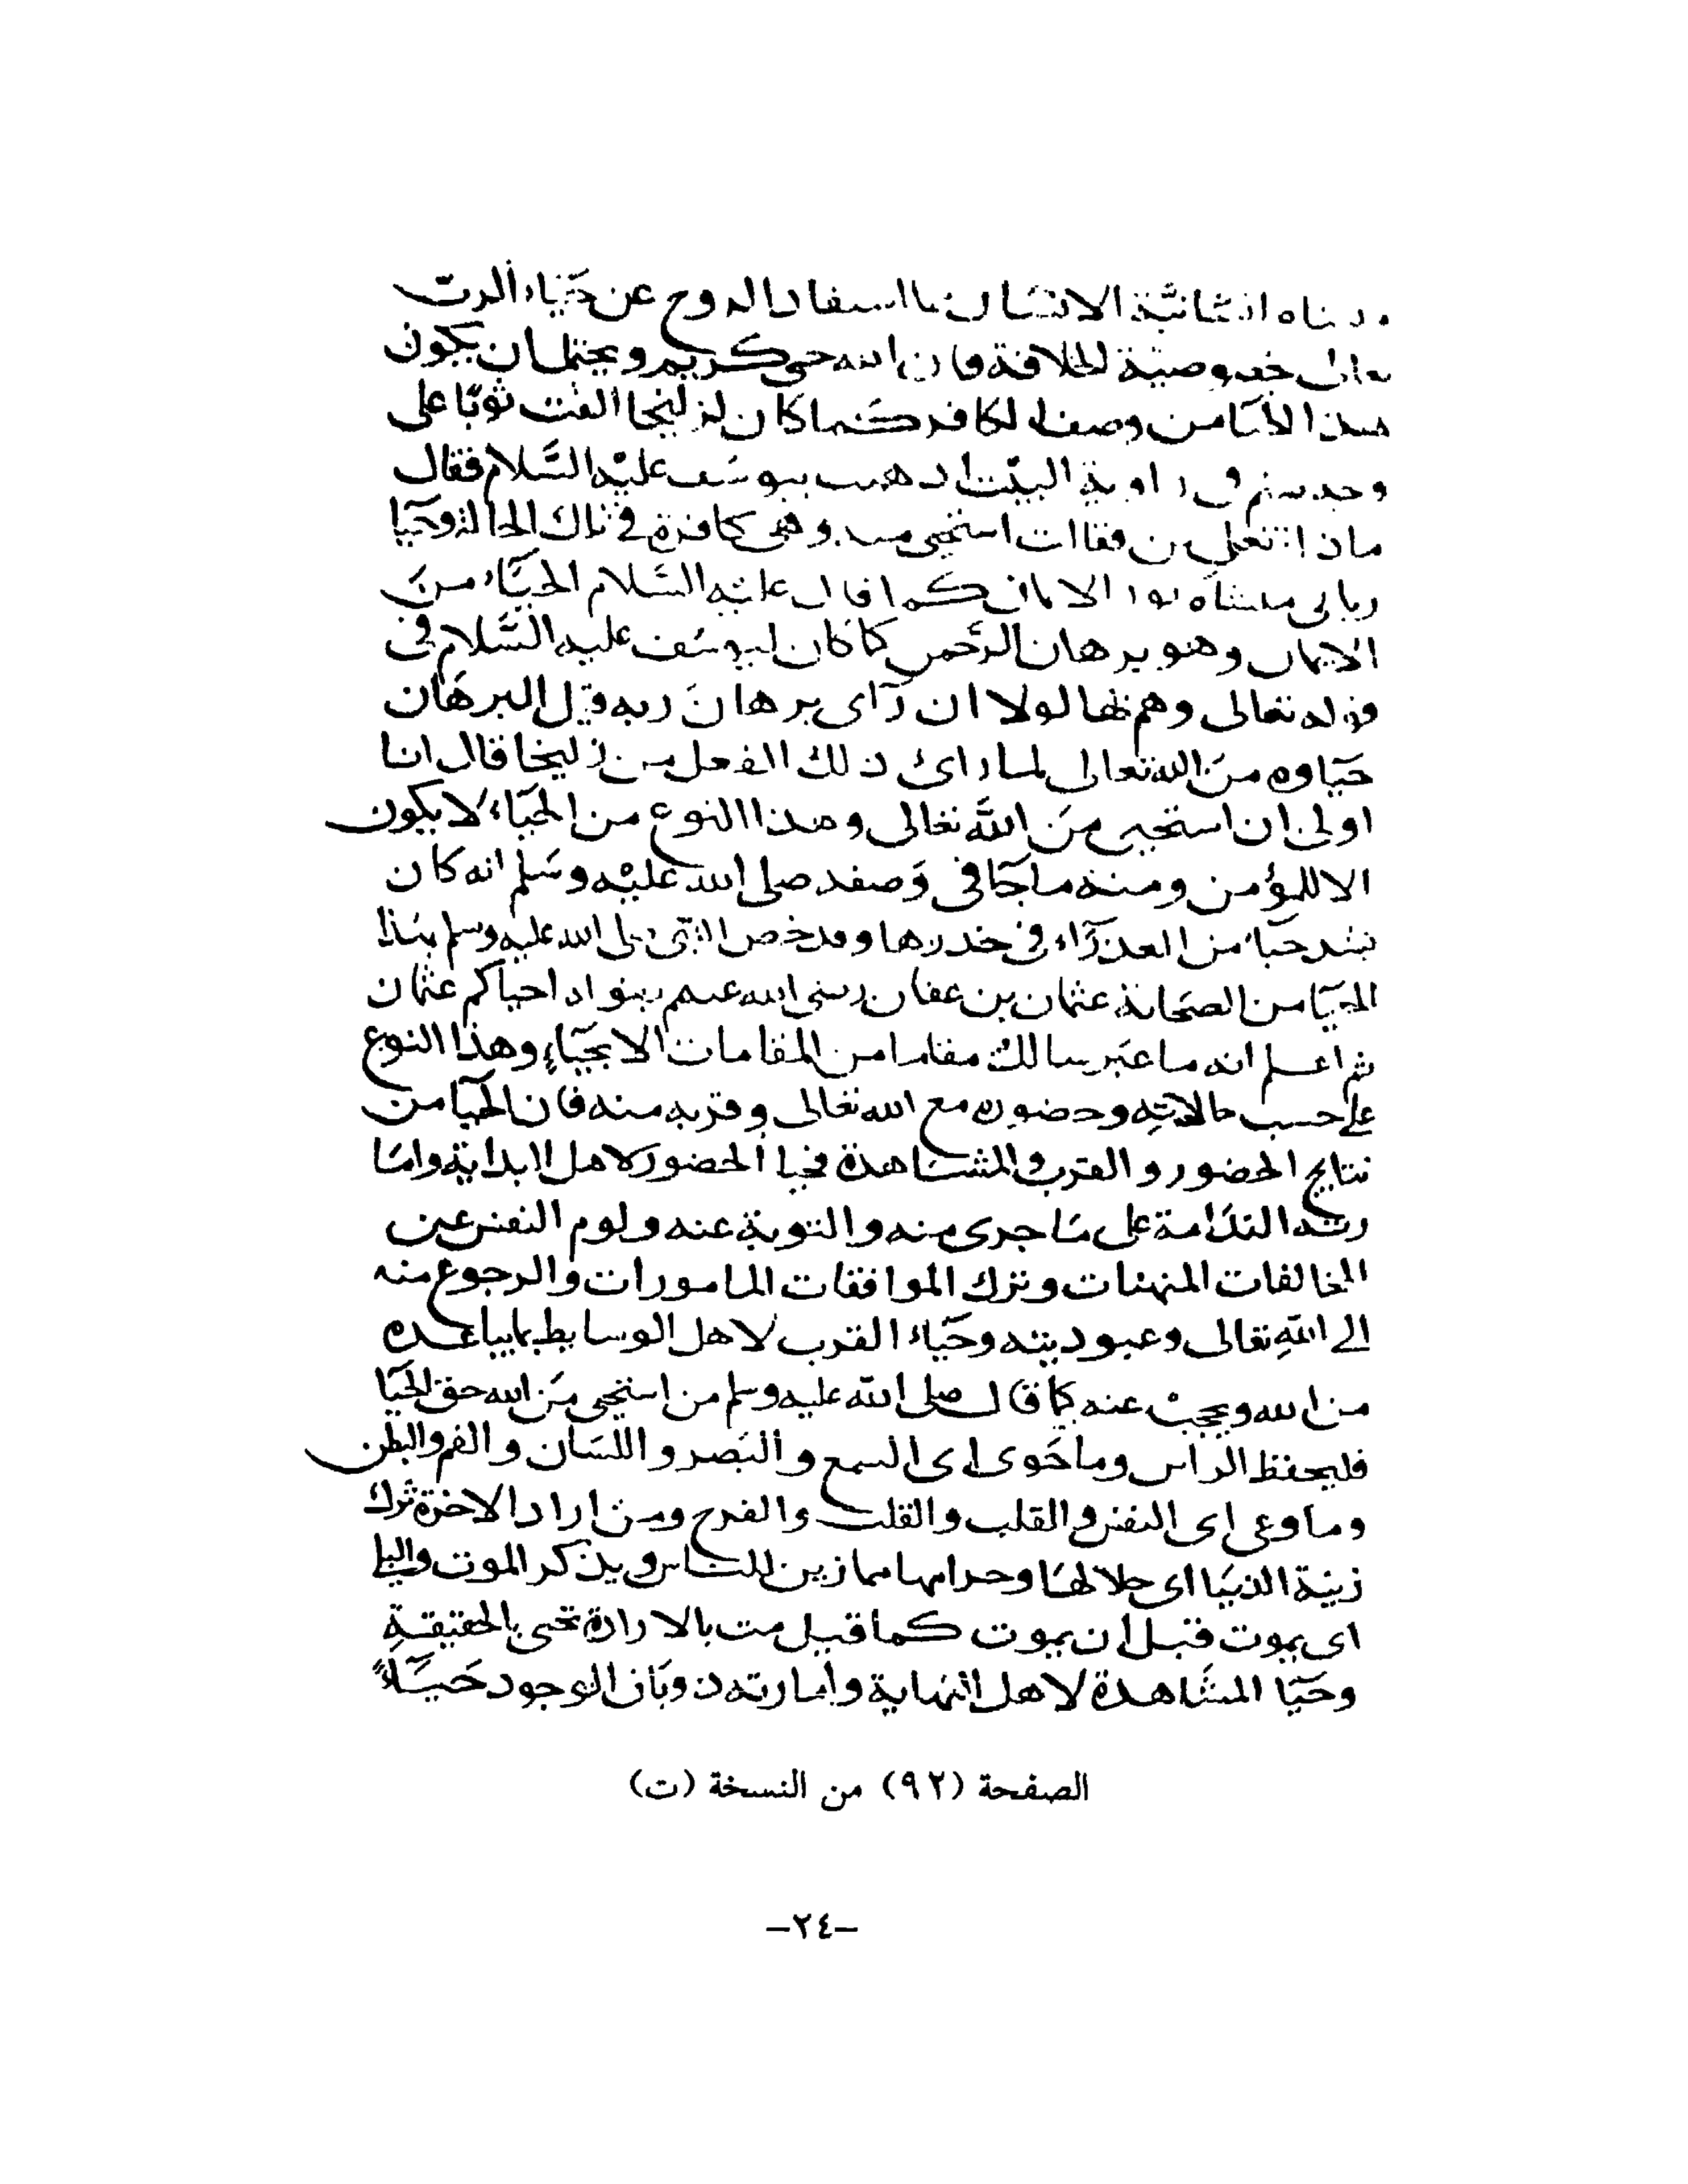 الانسان استفاد الروح عن حياء الرب
خصوصية الخلافة فان الله حي كريم ويحتمل ان يكون
هذا لكافر كما كان لزليخا القت ثوبا على
البيت بيوسف عليه السلام فقال
فقالت استحيى منه وهي كافرة في تلك الحالة وحيا
منشاه نور الايمان كما قال عليه السلام الحياء من
الايمان وهو برهان الرحمن كما كان ليوسف عليه السلام في
قوله تعالى وهم بها لولا ان رآى برهان ربه قيل البرهان
حياوه من الله تعالى لما رائ ذلك الفعل من زليخا قال انا
اولى ان استحيى من الله تعالى وهذا النوع من الحياء لا يكون
الا للمؤمن ومنه ما جآ في وصفه صلى الله عليه وسلم انه كان
حيا من العذرآء في خدرها وقد خص النبي صلى الله عليه وسلم بهذا
الحيا من الصحابة عثمان بن عفان رضي الله عنهم احياكم عثمان
ثم اعلم انه ما عبر سالك مقاما من المقامات الا بحياء وهذا النوع
على حسب حالاته وحضوره مع الله تعالى وقربه منه فان الحيا من
نتايج الحضور و القرب والمشاهدة فحيا الحضور لاهل البداية واما
رته الندامة على ما جرى منه والتوبة عنه ولوم النفس عن
المخالفات المنهيات وترك الموافقات المامورات والرجوع منه
الى الله تعالى وعبوديته وحياء القرب لاهل الوسايط بما يباعده
من الله ويحجب عنه كما قال صلى الله عليه وسلم من استحيى من الله حق الحيا
فليحفظ الراس وما حوى اى السمع و البصر و اللسان و الفم والبطن
وما وعى اى النفس والقلب والقلب والفرج ومن اراد الاخرة ترك
زينة الدنيا اى حلالها وحرامها مما زين للناس ويذكر الموت والبلى
اى يموت قبل ان يموت كما قيل مت بالارادة تحيى بالحقيقة
وحيا المشاهدة لاهل النهاية وامارته ذوبان الوجود حياءً
الصفحة (٩٢) من النسخة (ت)
-٢٤-